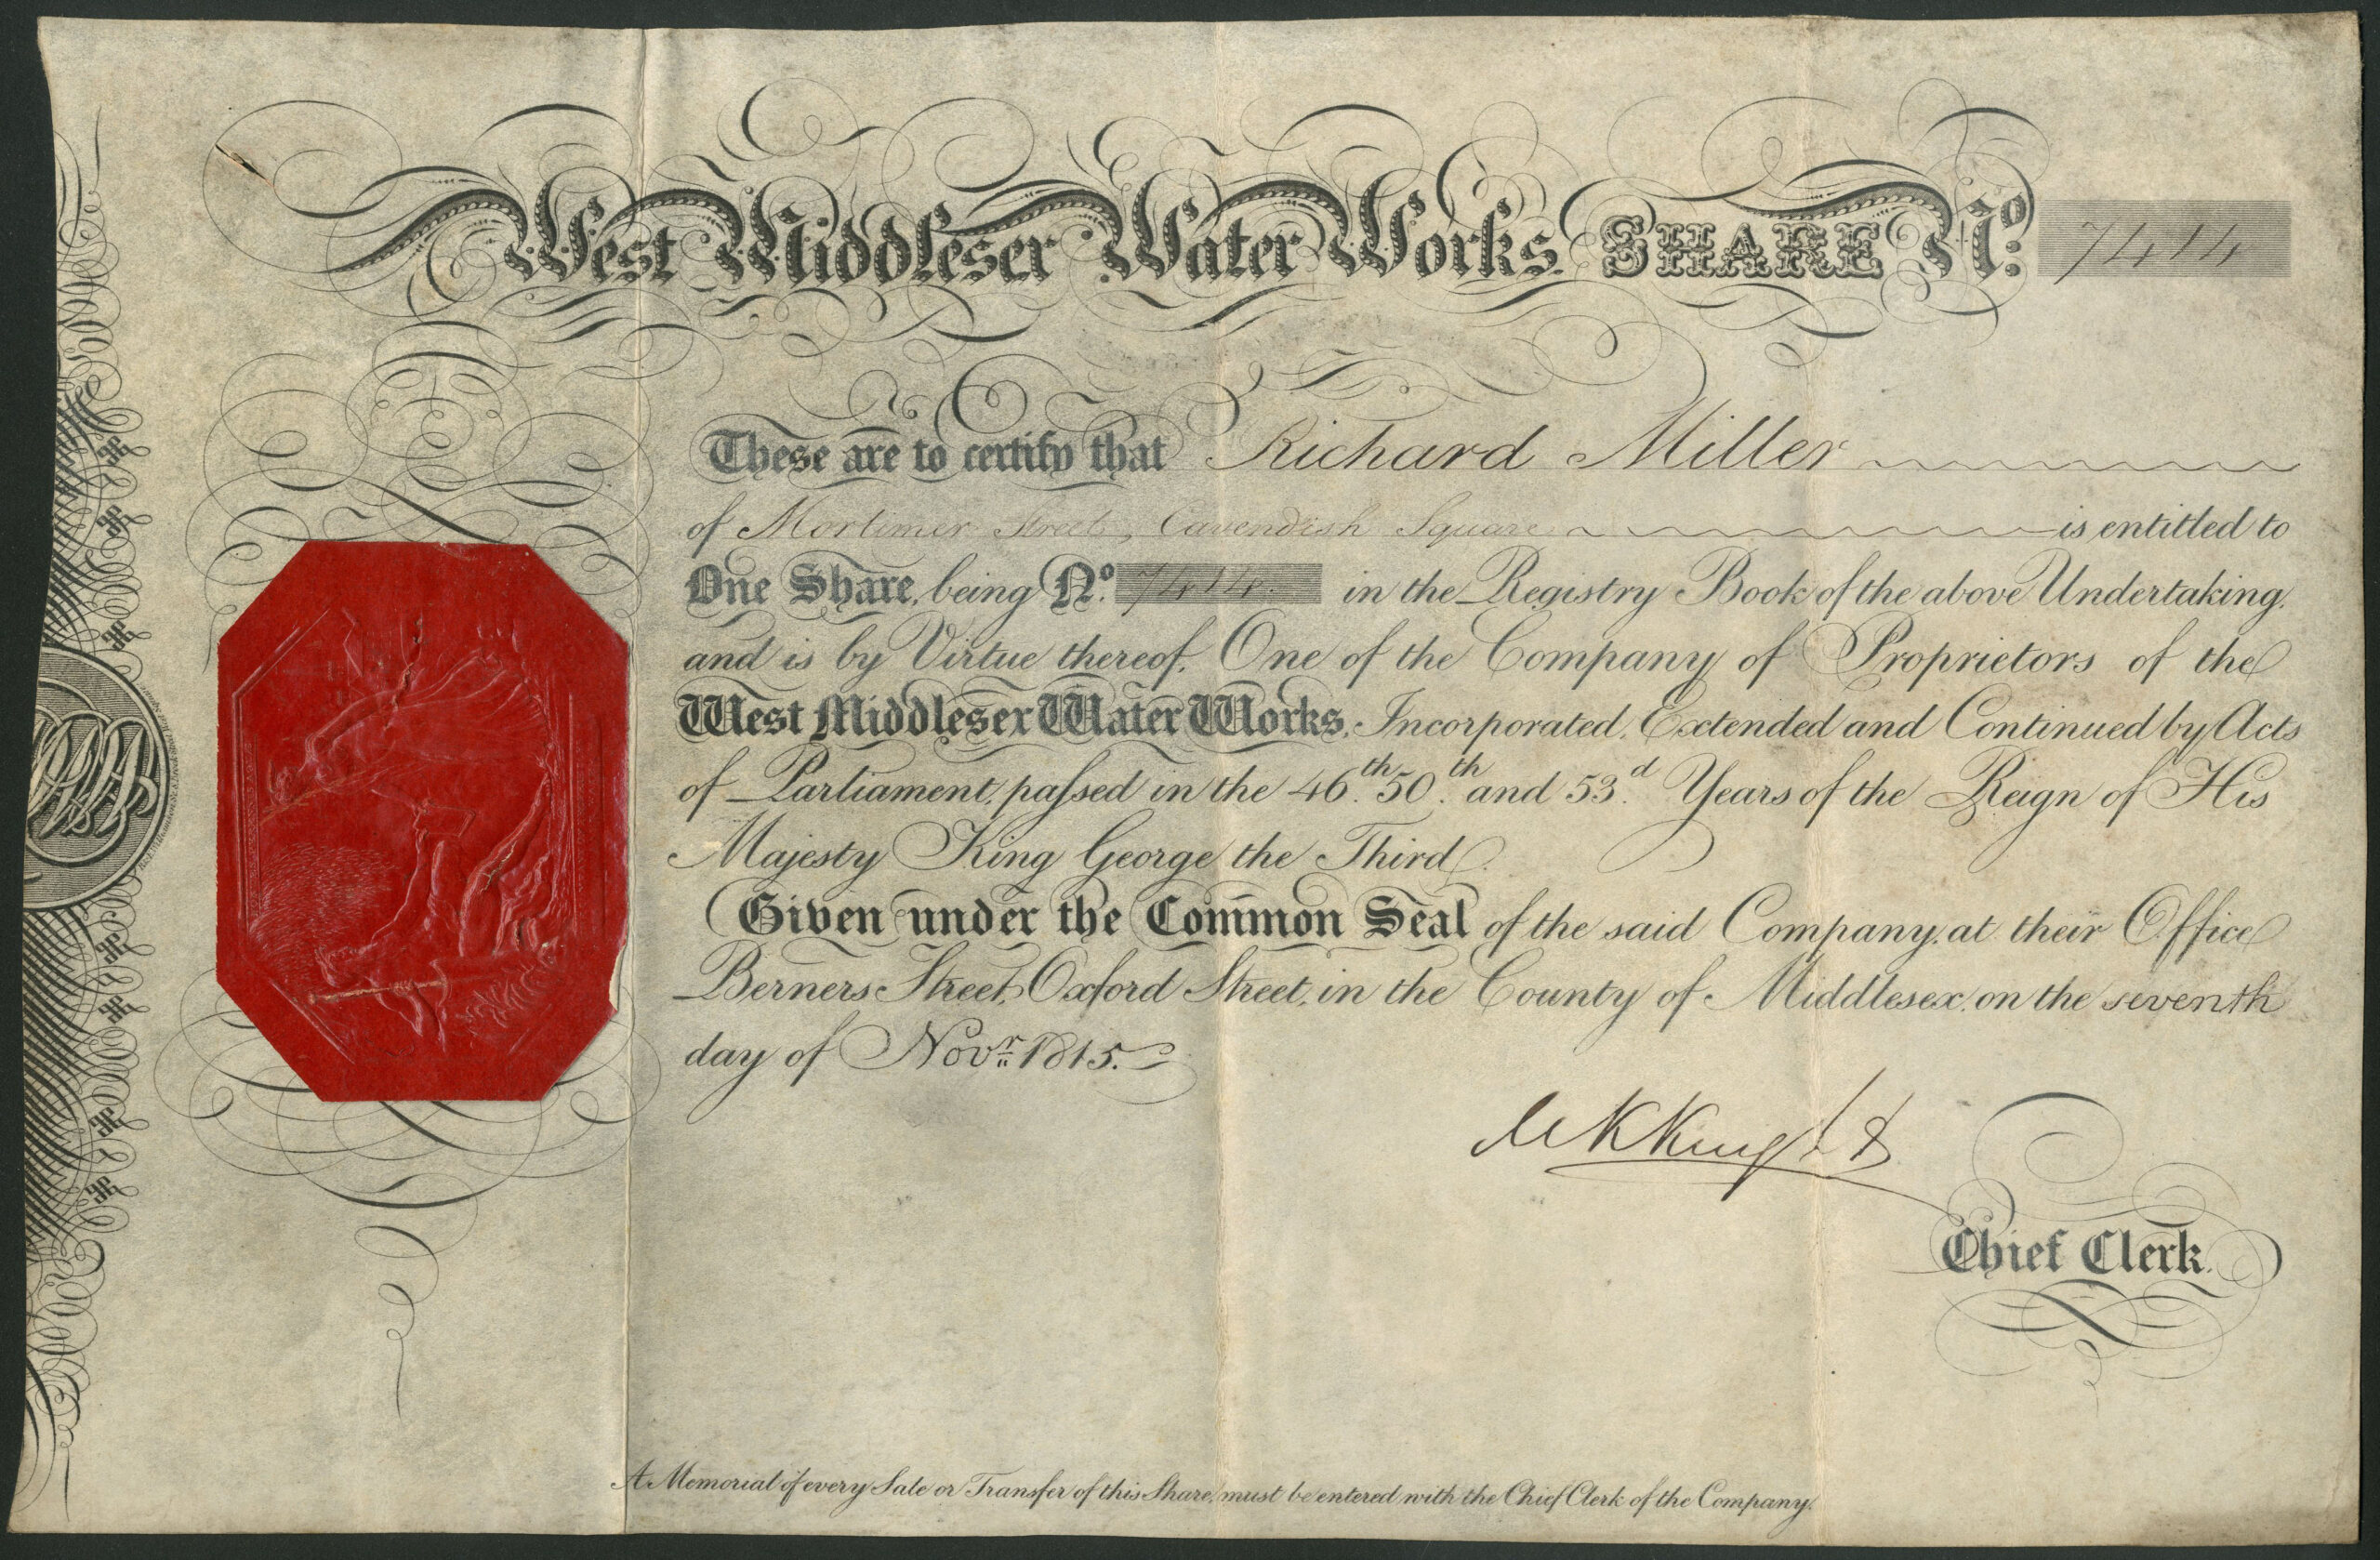 West Middlesex Water Works. SHARE No. 7414
These are to certify that Richard Miller
of Mortimer Street, Cavendish Square is entitled to
One Share, being No. 7414. in the Registry Book of the above Undertaking,
and is by Virtue thereof, One of the Company of Proprietors of the
West Middlesex Water Works, Incorporated, Extended and Continued by Acts
of Parliament, paſsed in the 46.th 50.th and 53.d Years of the Reign of His
Majesty King George the Third.
Given under the Common Seal of the said Company, at their Office
Berners Street, Oxford Street, in the County of Middlesex, on the seventh
day of Novr. 1815.
Chief Clerk.
A Memorial of every Sale or Transfer of this Share, must be entered with the Chief Clerk of the Company.